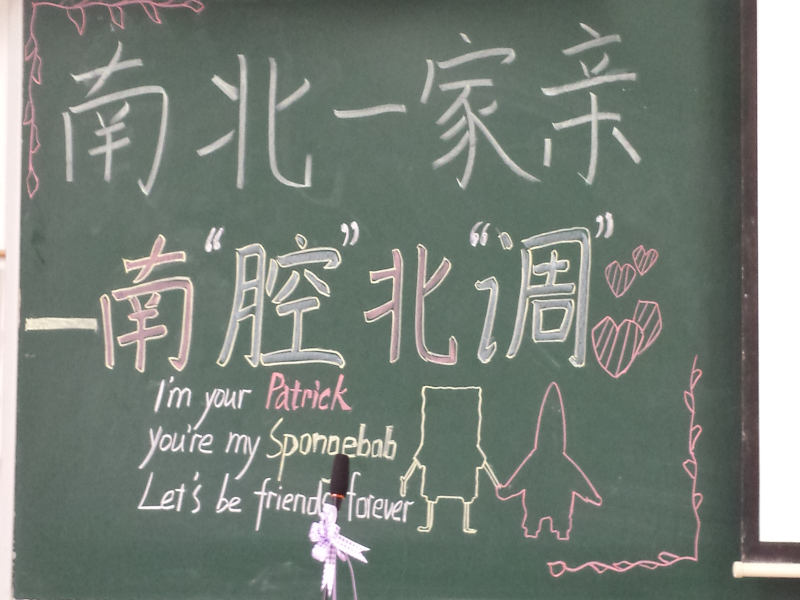 南北一家亲
—南“腔”北“调”
I'm your Patrick
you're my Spongebob
Let's be friends forever